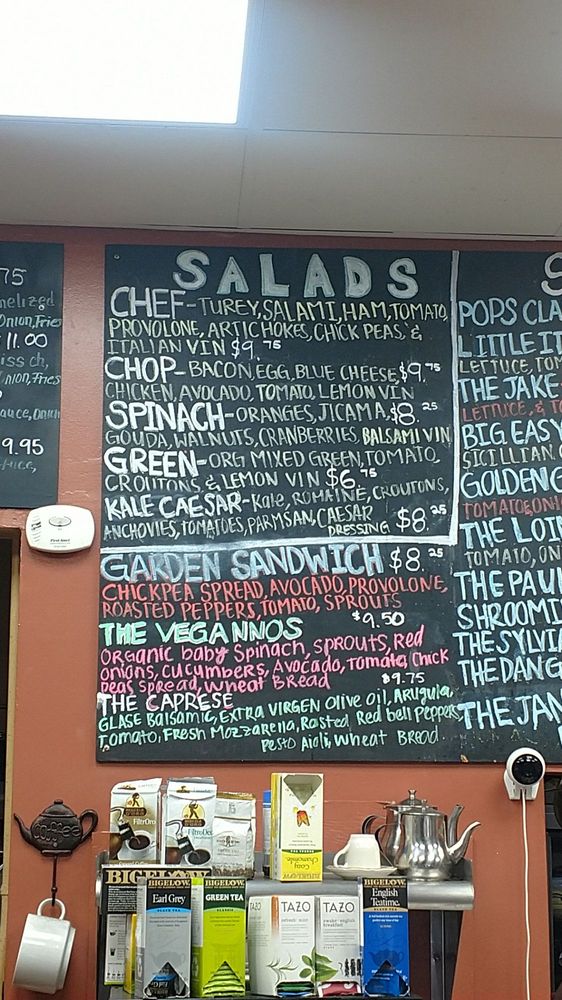 75
melized
Onion, Fries
11.00
iss ch,
nion, Fries
auce, Onion
9.95
SALADS
CHEF-TUREY, SALAMI, HAM, TOMATO,
PROVOLONE, ARTICHOKES, CHICK PEAS, &
ITALIAN VIN $9.75
CHOP- BACON, EGG, BLUE CHEESE, $9.75
CHICKEN, AVOCADO, TOMATO, LEMON VIN
SPINACH-ORANGES, JICAMA, $8.25
GOUDA, WALNUTS, CRANBERRIES, BALSAMI VIN
GREEN-ORG MIXED GREEN, TOMATO,
CROUTONS & LEMON VIN $6.75
KALE CAESAR-Kale, ROMAINE, CROUTONS,
ANCHOVIES, TOMATOES, PARMSAN, CAESAR
DRESSING $8.25
GARDEN SANDWICH $8.25
CHICKPEA SPREAD, AVOCADO, PROVOLONE,
ROASTED PEPPERS, TOMATO, SPROUTS
THE VEGANNOS $9.50
Organic baby Spinach, sprouts, Red
onions, cucumbers, Avocado, tomato, Chick
peas Spread, wheat Bread
THE CAPRESE $9.75
GLASE Balsamic, EXTRA VIRGEN Olive oil, Arugula,
Tomato, Fresh Mozzarella, Roasted Red bell Peppers
Pesto Aioli, Wheat Bread.
S
POPS CLA
LITTLE IT
LETTUCE, TOM
THE JAKE
LETTUCE, & TO
BIG EASY
SICILLIAN
GOLDEN G
TOMATO, ONI
THE LOI
TOMATO, ON
THE PAU
SHROOMI
THE SYLVIA
THE DANG
THE JAN
First Alert
coffee
FiltrOro
FiltroDeca
Cozy
Chamomile
BIGELOW
BIGELOW
BIGELOW
Earl Grey
BLACK TEA
BIGELOW
GREEN TEA
CLASSIC
TAZO
TAZO
refresh mint
TAZO
awake english
breakfast
BIGELOW
English
Teatime
BLACK TEA